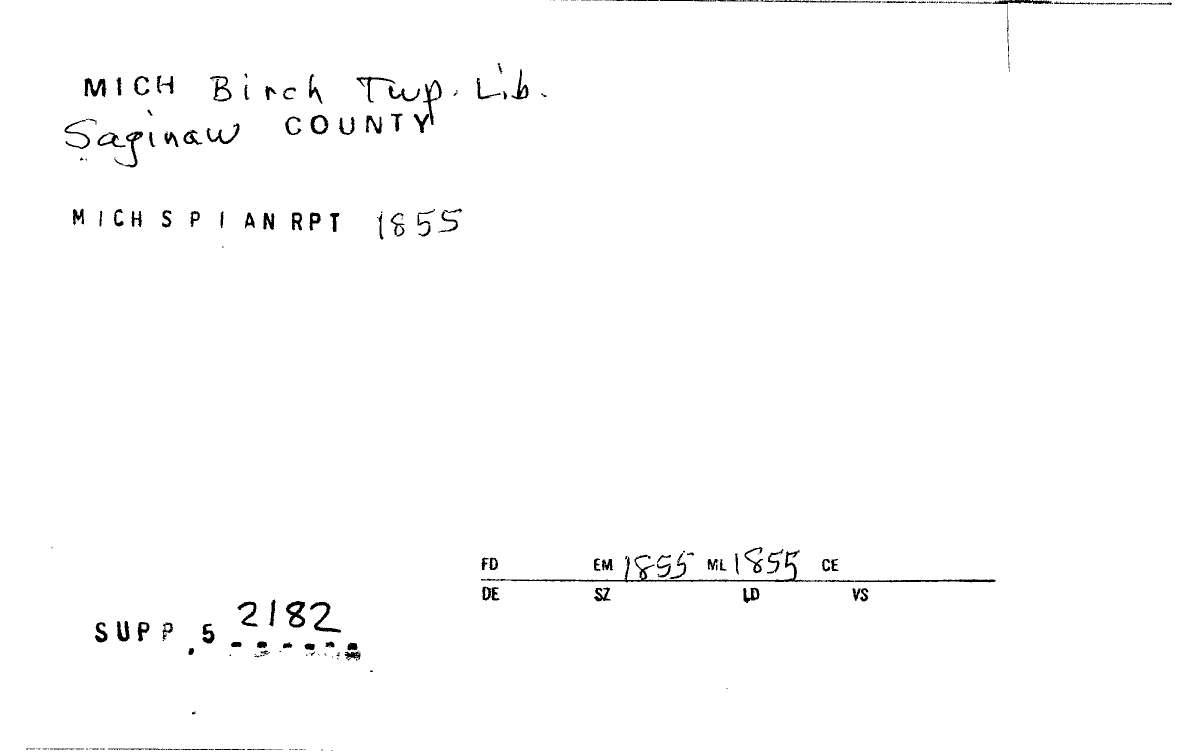 MICH Birch Twp. Lib.
Saginaw COUNTY
MICH S P I AN RPT 1855
FD EM 1855 ML 1855 CE
DE SZ LD VS
SUPP.5 2182